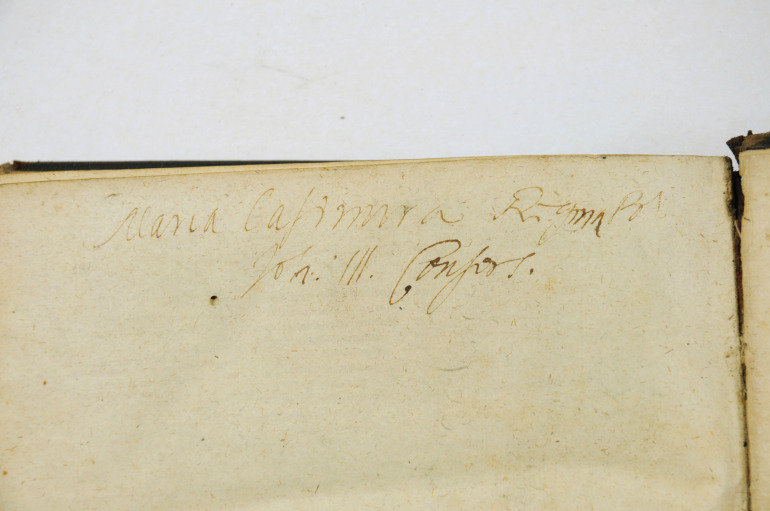 Maria Casimira Regina Pol
Joh. III. Consors.